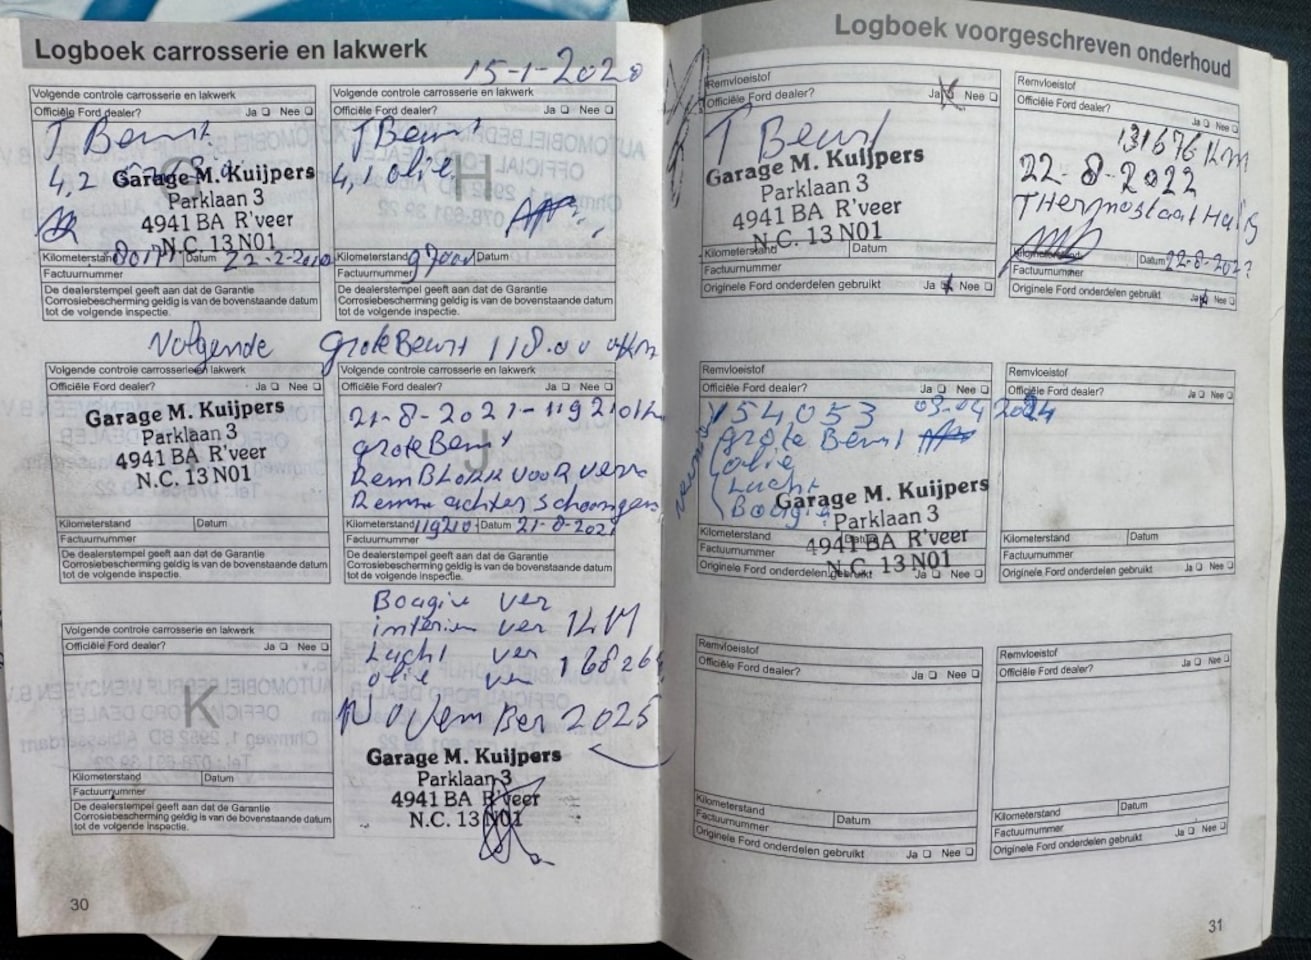 Logboek carrosserie en lakwerk
15-1-2020
Volgende controle carrosserie en lakwerk
Officiële Ford dealer? Ja Nee
T Beurt
4,2
Garage M. Kuijpers
Parklaan 3
4941 BA R'veer
N.C. 13 N01
Kilometerstand Datum 22-2-20
Factuurnummer
De dealerstempel geeft aan dat de Garantie
Corrosiebescherming geldig is van bovenstaande datum
tot de volgende inspectie.
Volgende controle carrosserie en lakwerk
Officiële Ford dealer? Ja Nee
T Beurt
4,1 olie
H
Kilometerstand Datum
Factuurnummer
De dealerstempel geeft aan dat de Garantie
Corrosiebescherming geldig is van de bovenstaande datum
tot de volgende inspectie.
Volgende grote Beurt 118.00 km
Volgende controle carrosserie en lakwerk
Officiële Ford dealer? Ja Nee
Garage M. Kuijpers
Parklaan 3
4941 BA R'veer
N.C. 13 N01
Kilometerstand Datum
Factuurnummer
De dealerstempel geeft aan dat de Garantie
Corrosiebescherming geldig is van de bovenstaande datum
tot de volgende inspectie.
Volgende controle carrosserie en lakwerk
Officiële Ford dealer? Ja Nee
21-8-2021-119210
grote Beurt
RemBlokk voor ver
Remme achter schoongem
J
Kilometerstand 119210 Datum 21-8-2021
Factuurnummer
De dealerstempel geeft aan dat de Garantie
Corrosiebescherming geldig is van de bovenstaande datum
tot de volgende inspectie.
Volgende controle carrosserie en lakwerk
Officiële Ford dealer? Ja Nee
K
Kilometerstand Datum
Factuurnummer
De dealerstempel geeft aan dat de Garantie
Corrosiebescherming geldig is van de bovenstaande datum
tot de volgende inspectie.
Bougie ver
interieu ver
Lucht ver 16826
olie ver
November 2025
Garage M. Kuijpers
Parklaan 3
4941 BA R'veer
N.C. 13 N01
30
Logboek voorgeschreven onderhoud
Remvloeistof
Officiële Ford dealer? Ja Nee
T Beurt
Garage M. Kuijpers
Parklaan 3
4941 BA R'veer
N.C. 13 N01
Kilometerstand Datum
Factuurnummer
Originele Ford onderdelen gebruikt Ja Nee
Remvloeistof
Officiële Ford dealer?
Ja Nee
131676 km
22-8-2022
THermostaat Huis
Kilometerstand Datum 22-8-2022
Factuurnummer
Originele Ford onderdelen gebruikt Ja Nee
Remvloeistof
Officiële Ford dealer? Ja Nee
154053 03-04 2024
grote Beurt
olie
Lucht
Bougie
Garage M. Kuijpers
Parklaan 3
4941 BA R'veer
N.C. 13 N01
Kilometerstand Datum
Factuurnummer
Originele Ford onderdelen gebruikt Ja Nee
Remvloeistof
Officiële Ford dealer? Ja Nee
Kilometerstand Datum
Factuurnummer
Originele Ford onderdelen gebruikt Ja Nee
Remvloeistof
Officiële Ford dealer? Ja Nee
Kilometerstand Datum
Factuurnummer
Originele Ford onderdelen gebruikt Ja Nee
Remvloeistof
Officiële Ford dealer? Ja Nee
Kilometerstand Datum
Factuurnummer
Originele Ford onderdelen gebruikt Ja Nee
31